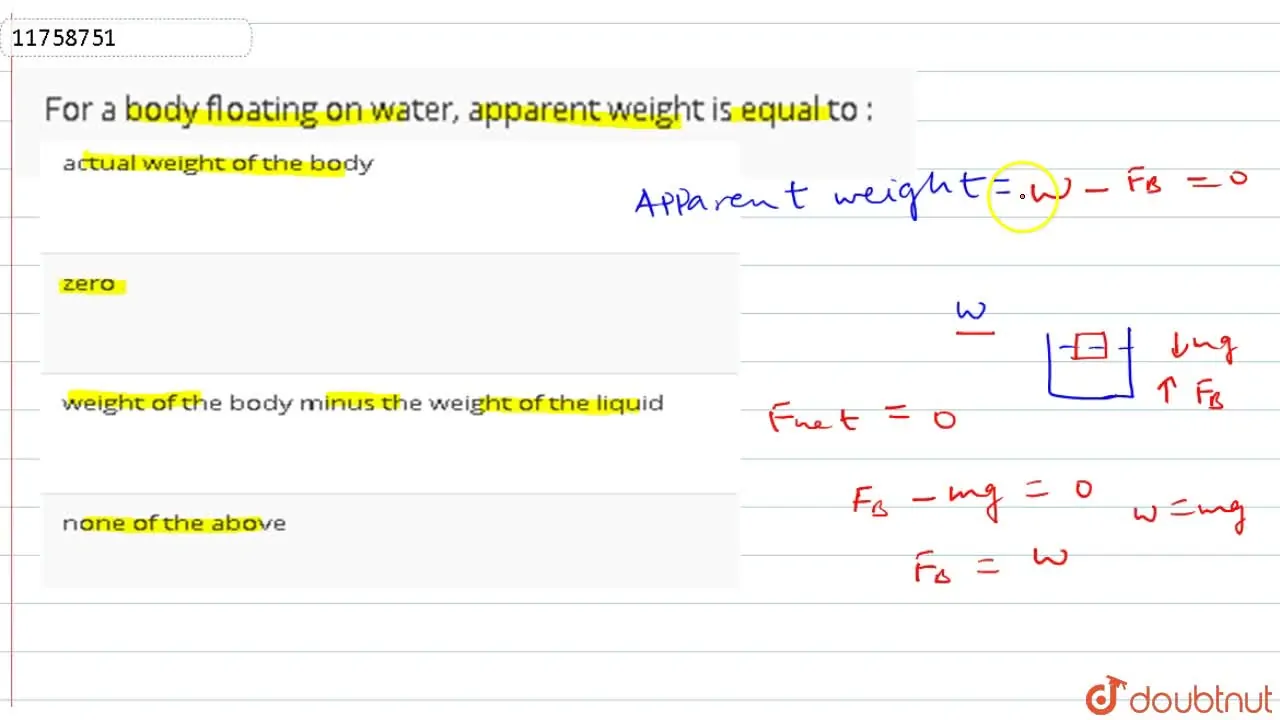 11758751
For a body floating on water, apparent weight is equal to :
actual weight of the body
Apparent weight = W - FB = 0
zero
W
↓mg
↑ FB
weight of the body minus the weight of the liquid
Fnet = 0
FB - mg = 0
W = mg
none of the above
FB = W
doubtnut